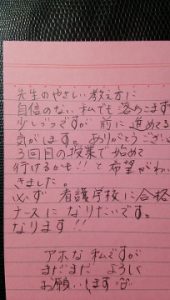 先生のやさしい教え方に
自信のない私でも落ちこます
少しづつですが 前に進めてる
気がします。ありがとうござい
3回目の授業で始めて
行けるかも!!と希望がわい
きました。
必ず 看護学校に合格
ナースになりたいです。
なります!!
アホな私ですが
まだまだ よろしく
お願いします